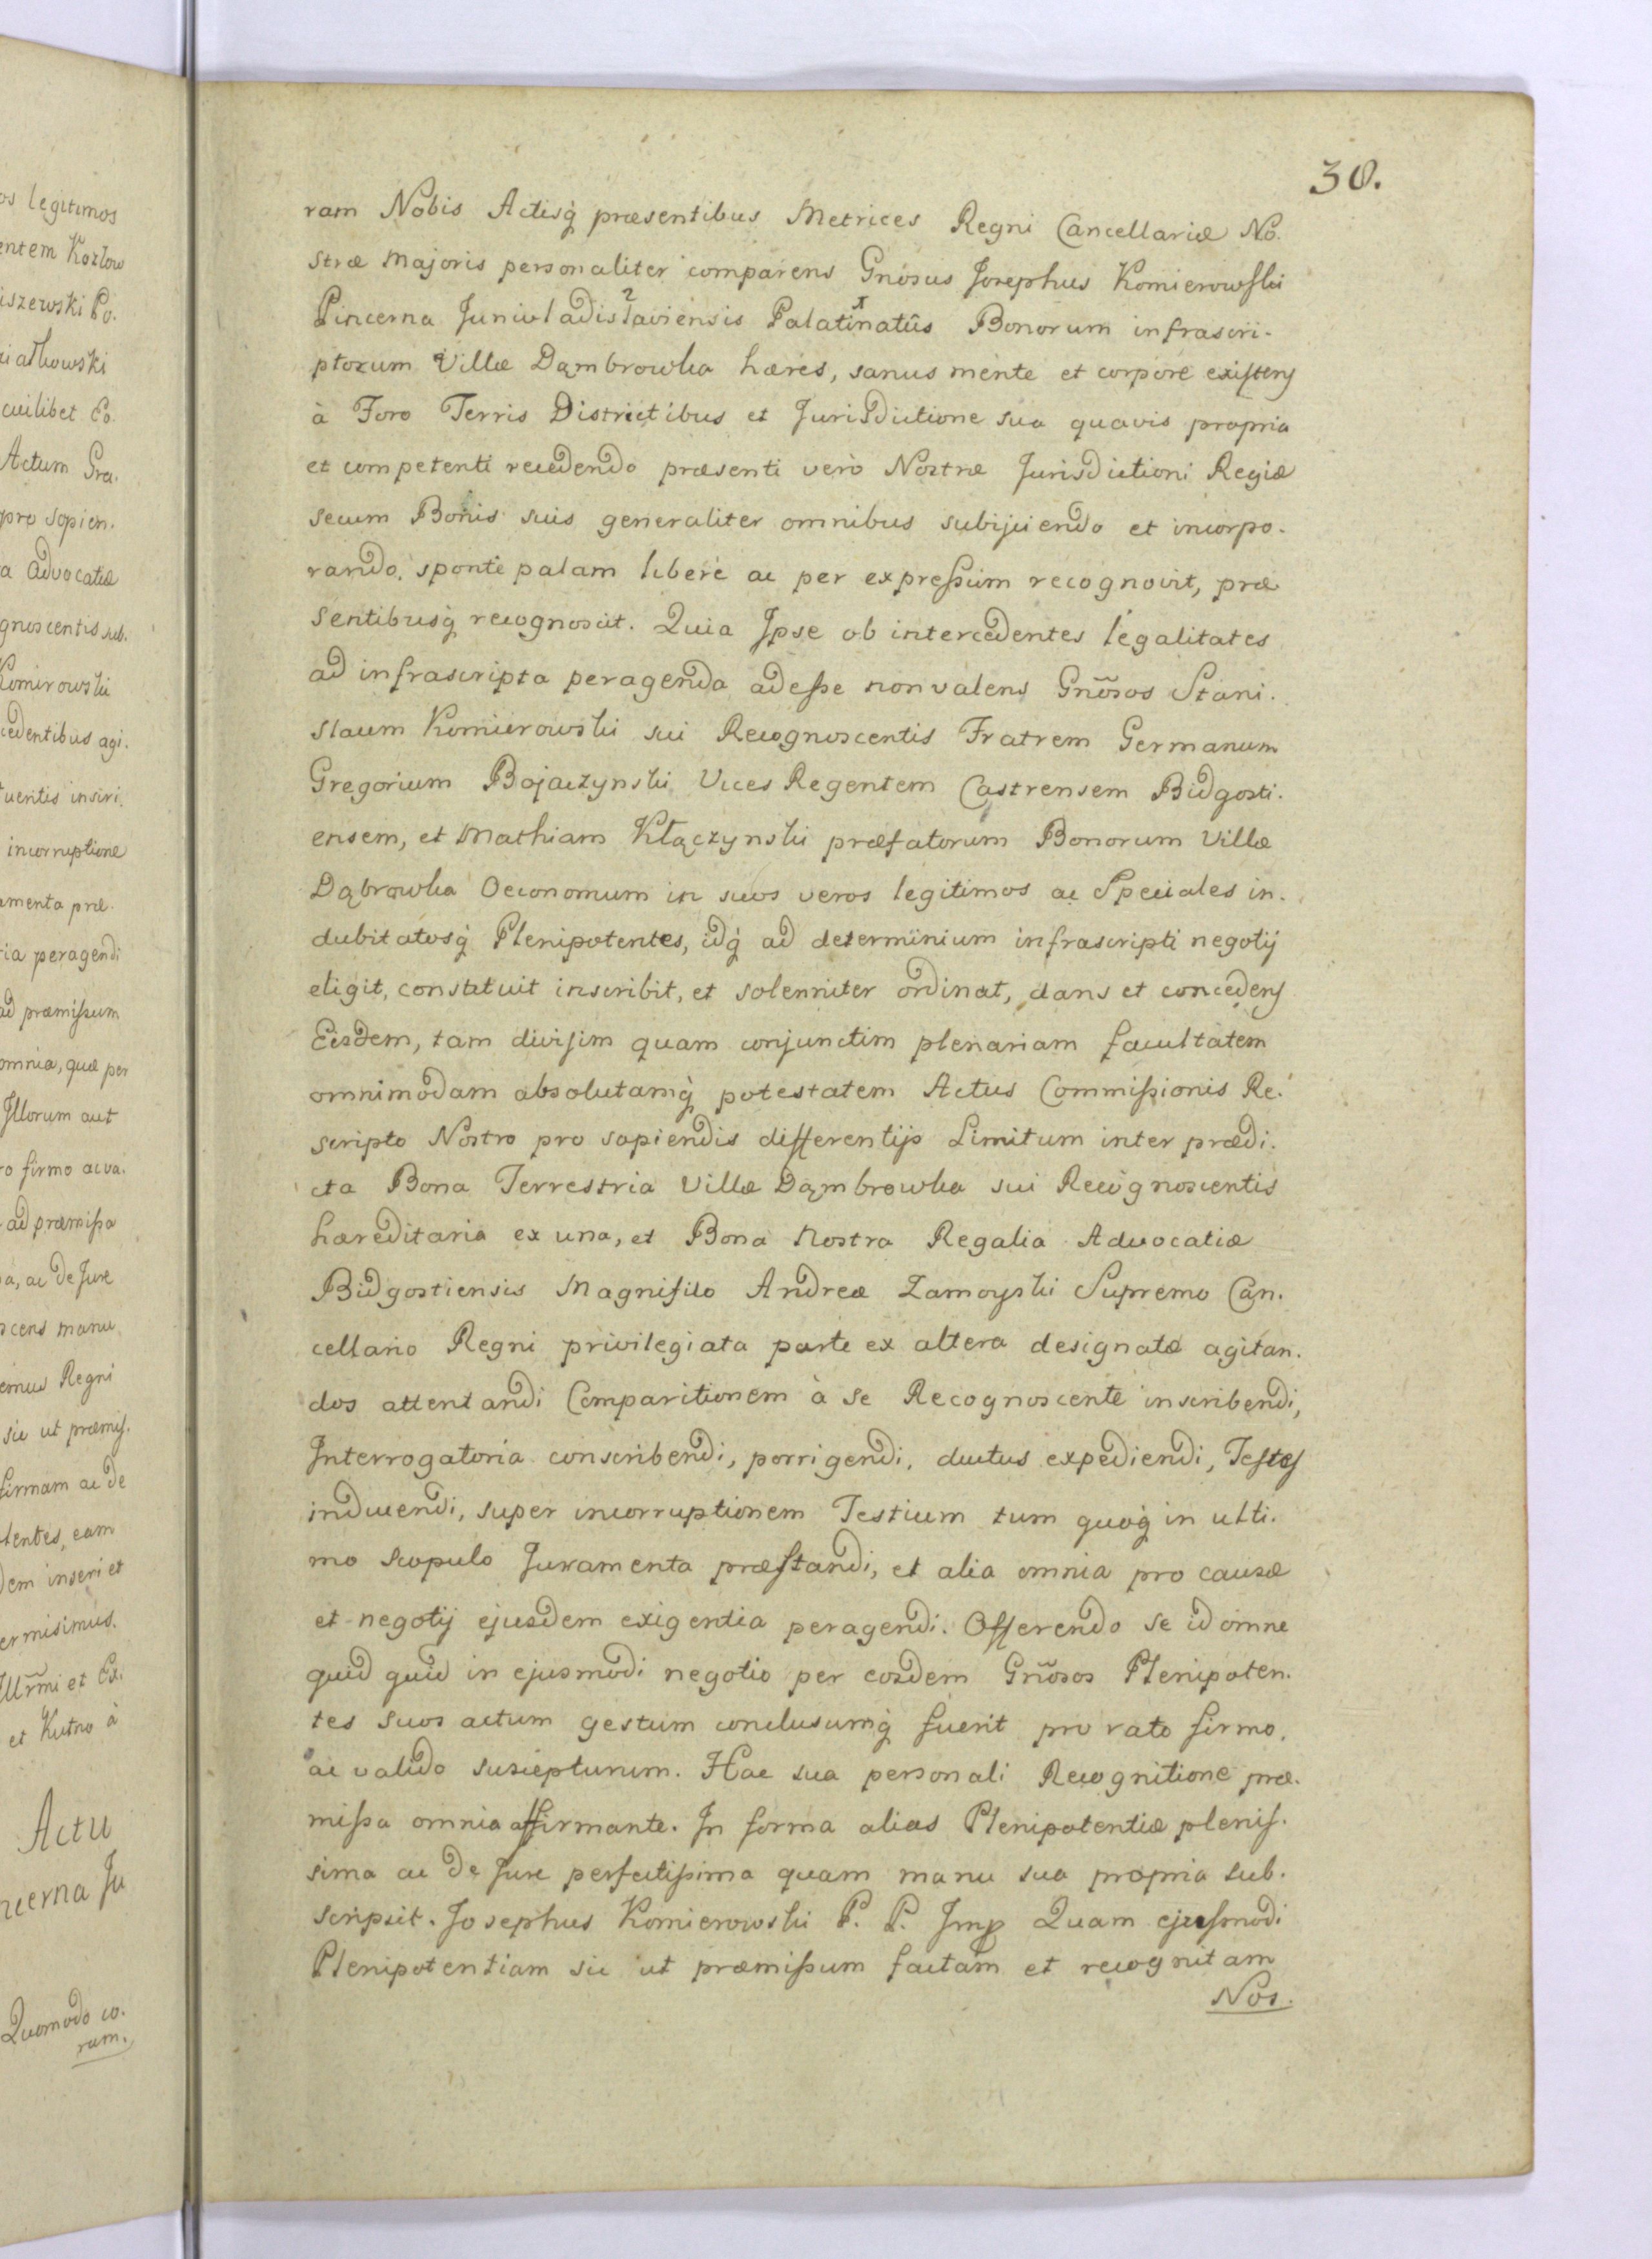 os legitimos
entem Kozlow
iszewski Po.
cuilibet Po.
Actum Præ.
pro sopien.
a Advocatiæ
gnoscentis sub.
Komirowski
cedentibus agi.
tuentis inscri.
incorruptione
amenta præ.
ria peragendi
ad præmissum
omnia, quæ per
Illorum aut
ro firmo ac va.
ad præmissa
a, ac de Jure
scens manu
emus Regni
sic ut præmis.
firmam ac de
tentes, eam
dem inseri et
ermisimus.
Illr̃mi et Ex.
et Kutno à
Actu
ncerna Ju
Quomodo co.
ram.
30.
ram Nobis Actisq̀ præsentibus Metrices Regni Cancellariæ No.
stræ Majoris personaliter comparens Gnosus Josephus Komierowski
Pincerna Junivladislaviensis Palatinatûs Bonorum infrascri.
ptorum Villæ Dąmbrowka hæres, sanus mente et corpore existens
à Foro Terris Districtibus et Jurisdictione sua quavis propria
et competenti recedendo præsenti verò Nostræ Jurisdictioni Regiæ
secum Bonis suis generaliter omnibus subijciendo et incorpo.
rando, sponte palam liberè ac per expressum recognovit, præ
sentibusq̀ recognoscit. Quia Ipse ob intercedentes legalitates
ad infrascripta peragenda adesse non valens Gnõsos Stani.
slaum Komierowski sui Recognoscentis Fratrem Germanum
Gregorium Bojaczynski Vices Regentem Castrensem Bidgosti.
ensem, et Mathiam Kłączynski præfatorum Bonorum Villæ
Dąbrowka Oeconomum in suos veros legitimos ac Speciales in.
dubitatosq̀ Plenipotentes, idq̀ ad determinium infrascripti negotij
eligit, constituit inscribit, et solenniter ordinat, dans et concedens
Eisdem, tam divisim quam conjunctim plenariam facultatem
omnimodam absolutamq̀ potestatem Actus Commissionis Re.
scripto Nostro pro sopiendis differentijs Limitum inter prædi.
cta Bona Terrestria Villæ Dąmbrowka sui Recognoscentis
hæreditaria ex una, et Bona Nostra Regalia Advocatiæ
Bidgostiensis Magnifico Andreæ Zamoyski Supremo Can.
cellario Regni privilegiata parte ex altera designatæ agitan.
dos attentandi Comparitionem à se Recognoscente inscribendi,
Interrogatoria conscribendi, porrigendi, ductus expediendi, Testes
inducendi, super incorruptionem Testium tum quoq̀ in ulti.
mo scopulo Juramenta præstandi, et alia omnia pro causæ
et negotij ejusdem exigentia peragendi. Offerendo se id omne
quid quid in ejusmodi negotio per eosdem Gnõsos Plenipoten.
tes suos actum gestum conclusumq̀ fuerit pro rato firmo,
ac valido suscepturum. Hac sua personali Recognitione præ.
missa omnia affirmante. In forma alias Plenipotentiæ plenis.
sima ac de Jure perfectissima quam manu sua propria sub.
scripsit. Josephus Komierowski P. P. Jmp Quam ejusmodi
Plenipotentiam sic ut præmissum factam et recognitam
Nos.